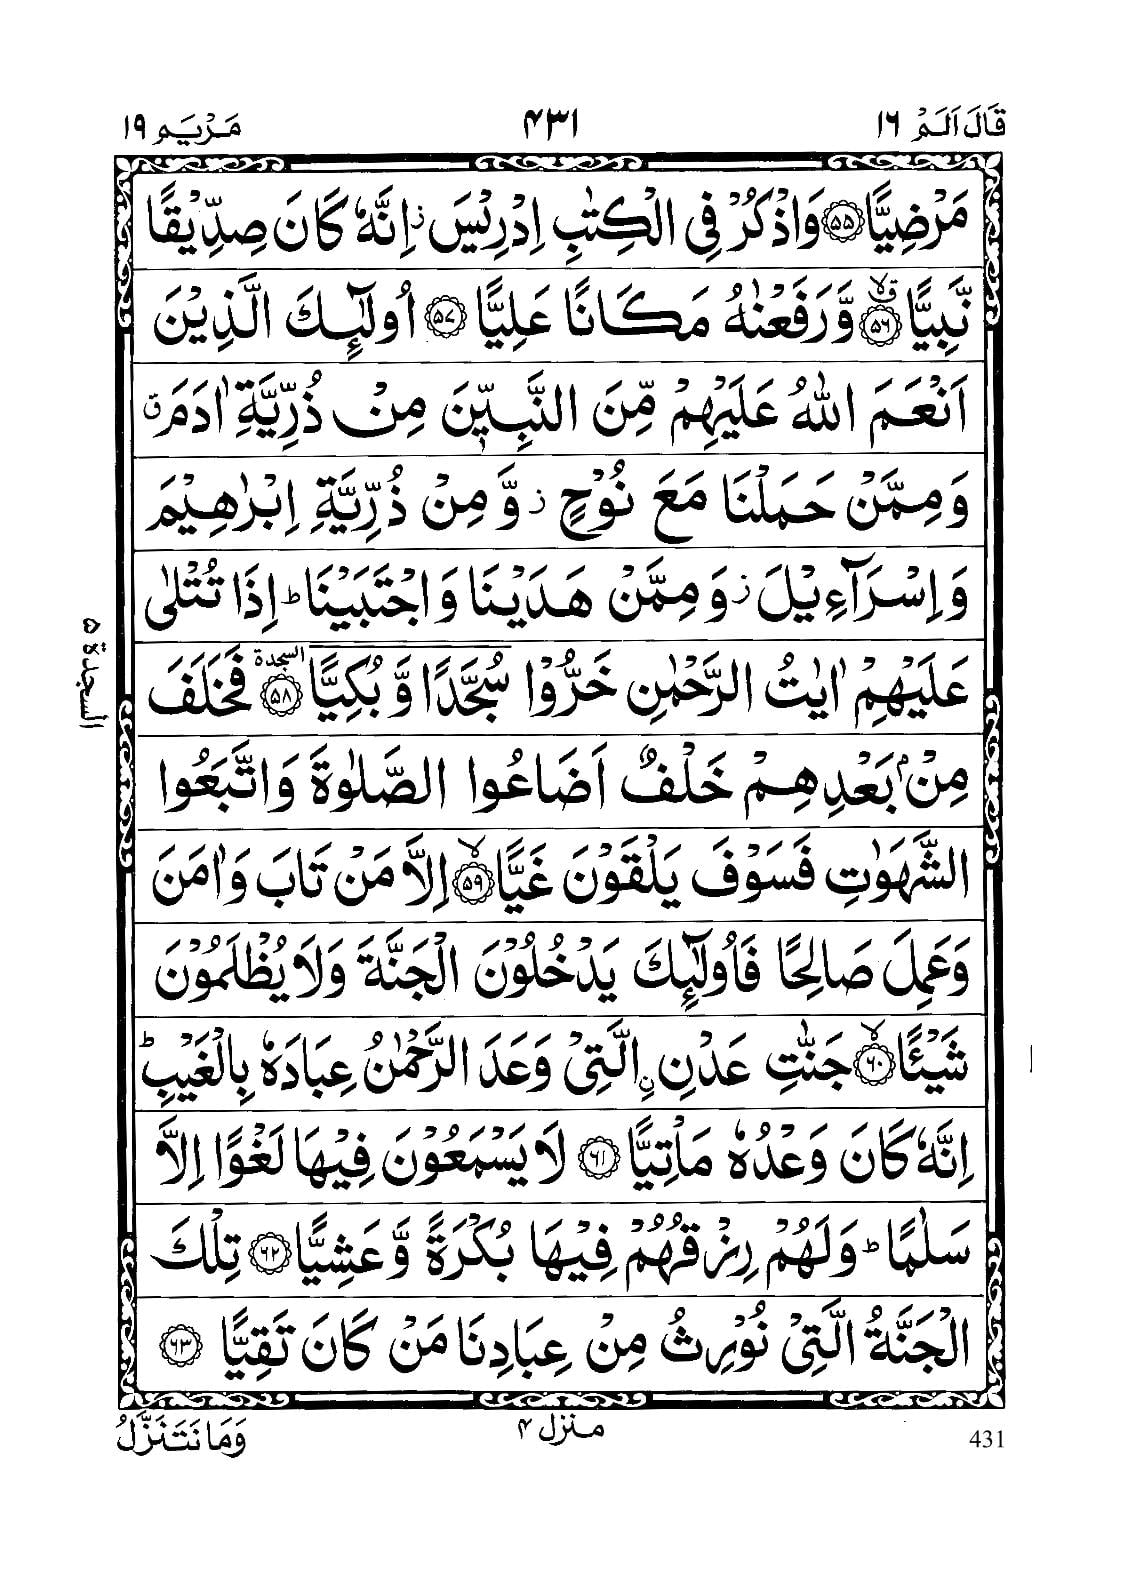 قَالَ اَلَمْ ١٦
۴۳۱
مَرْيَم ١٩
مَرْضِيًّا ﴿۵۵﴾ وَاذْكُرْ فِى الْكِتٰبِ اِدْرِيْسَ ز اِنَّهٗ كَانَ صِدِّيْقًا
نَّبِيًّا ﴿۵۶﴾ ق لا وَّرَفَعْنٰهُ مَكَانًا عَلِيًّا ﴿۵۷﴾ اُولٰٓئِكَ الَّذِيْنَ
اَنْعَمَ اللّٰهُ عَلَيْهِمْ مِّنَ النَّبِيّٖنَ مِنْ ذُرِّيَّةِ اٰدَمَ ق
وَمِمَّنْ حَمَلْنَا مَعَ نُوْحٍ ز وَّمِنْ ذُرِّيَّةِ اِبْرٰهِيْمَ
وَاِسْرَآءِيْلَ ز وَمِمَّنْ هَدَيْنَا وَاجْتَبَيْنَا ط اِذَا تُتْلٰى
عَلَيْهِمْ اٰيٰتُ الرَّحْمٰنِ خَرُّوْا سُجَّدًا وَّبُكِيًّا ﴿۵۸﴾ السجدة فَخَلَفَ
السجدة ۵
مِنْۢ بَعْدِهِمْ خَلْفٌ اَضَاعُوا الصَّلٰوةَ وَاتَّبَعُوا
الشَّهَوٰتِ فَسَوْفَ يَلْقَوْنَ غَيًّا ﴿۵۹﴾ لا اِلَّا مَنْ تَابَ وَاٰمَنَ
وَعَمِلَ صَالِحًا فَاُولٰٓئِكَ يَدْخُلُوْنَ الْجَنَّةَ وَلَا يُظْلَمُوْنَ
شَيْـًٔا ﴿۶۰﴾ لا جَنّٰتِ عَدْنِ ن ِالَّتِىْ وَعَدَ الرَّحْمٰنُ عِبَادَهٗ بِالْغَيْبِ ط
اِنَّهٗ كَانَ وَعْدُهٗ مَاْتِيًّا ﴿۶۱﴾ لَا يَسْمَعُوْنَ فِيْهَا لَغْوًا اِلَّا
سَلٰمًا ط وَلَهُمْ رِزْقُهُمْ فِيْهَا بُكْرَةً وَّعَشِيًّا ﴿۶۲﴾ تِلْكَ
الْجَنَّةُ الَّتِىْ نُوْرِثُ مِنْ عِبَادِنَا مَنْ كَانَ تَقِيًّا ﴿۶۳﴾
431
منزل ۴
وَمَا نَتَنَزَّلُ